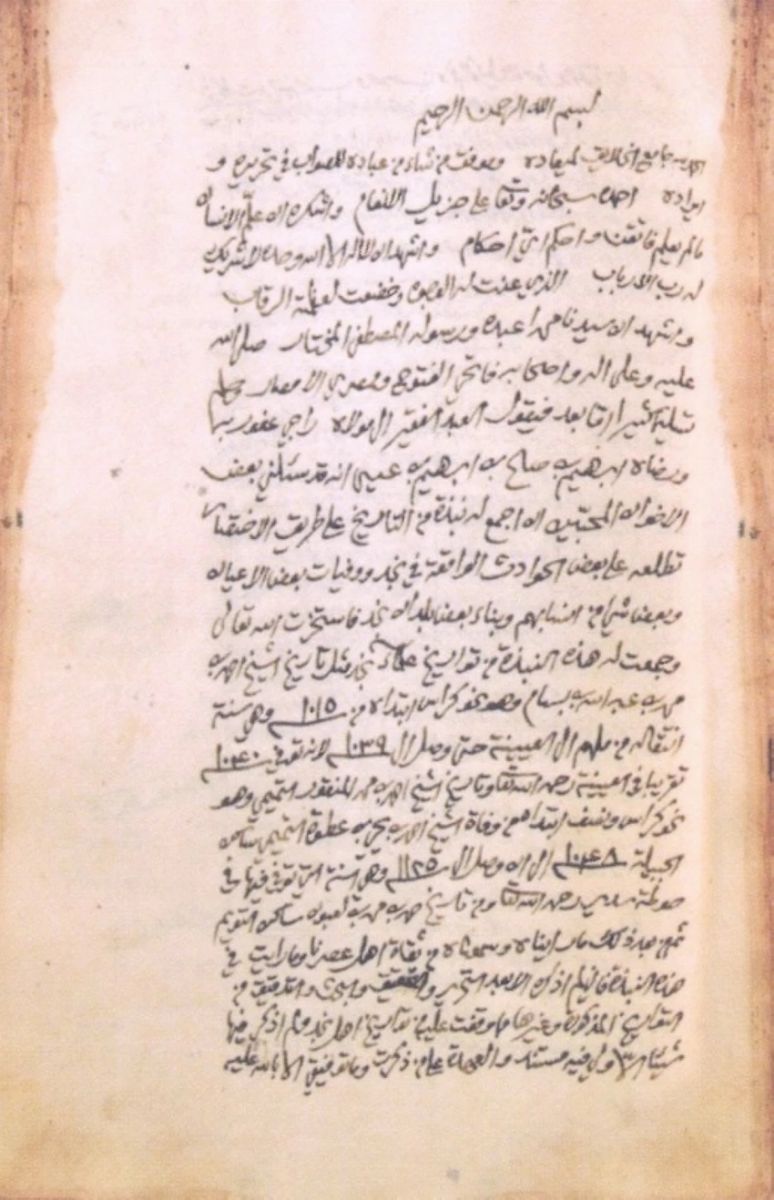 بسم الله الرحمن الرحيم
الحمد لله جامع الخلايق لميعاده وموفق من شاء من عباده للصواب في تحريره و
ايراده احمده سبحانه وتعالى على جزيل الانعام واشكره ان علم الانسان
مالم يعلم فاتقن واحكم اي احكام واشهد ان لا اله الا الله وحده لا شريك
له رب الارباب الذي عنت له الوجوه وخضعت لعظمته الرقاب
واشهد ان سيدنا محمدا عبده ورسوله المصطفى المختار صلى الله
عليه وعلى اله واصحابه فاتحي الفتوح وممصري الامصار وسلم
تسليما كثيرا اما بعد فيقول العبد الفقير الى مولاه راجي عفو ربه
ورضاه ابرهيم بن صالح بن ابرهيم بن عيسى انه قد سئلني بعض
الاخوان المحبين ان اجمع له نبذة من التاريخ على طريق الاختصار
تطلعه على بعض الحوادث الواقعة في نجد ووفيات بعض الاعيان
وبعض شيء من انسابهم وبناء بعض بلدان نجد فاستخرت الله تعالى
وجمعت له هذه النبذة من تواريخ علماء نجد مثل تاريخ الشيخ احمد بن
محمد بن عبد الله بن بسام وهو نحو كراس ابتداه من ١٠١٥ وهي سنة
انتقاله من ملهم الى العيينة حتى وصل الى ١٠٣٩ لانه توفي في ١٠٤٠
تقريبا في العيينة رحمه الله تعالى وتاريخ الشيخ احمد بن محمد المنقور التميمي وهو
نحو كراس ونصف ابتداه من وفاة الشيخ احمد بن يحيى بن عطوة التميمي ساكن
الجبيلة ٩٤٨ الى ان وصل الى ١١٢٥ وهي السنة التي توفي فيها في
حوطة سدير رحمه الله تعالى ومن تاريخ حمد بن محمد بن لعبون ساكن التويم
ثم من بعد ذلك مما رايناه وسمعناه من ثقاة اهل عصرنا وما رايت في
هذه النبذة فاني لم اذكره الا بعد التحري والتحقيق والبحث والتدقيق من
التواريخ المذكورة وغيرها مما وقفت عليه من تواريخ اهل نجد ولم اذكر فيها
شيئا الا ولي فيه مستند والعهدة على من ذكرت وما توفيقي الا بالله عليه